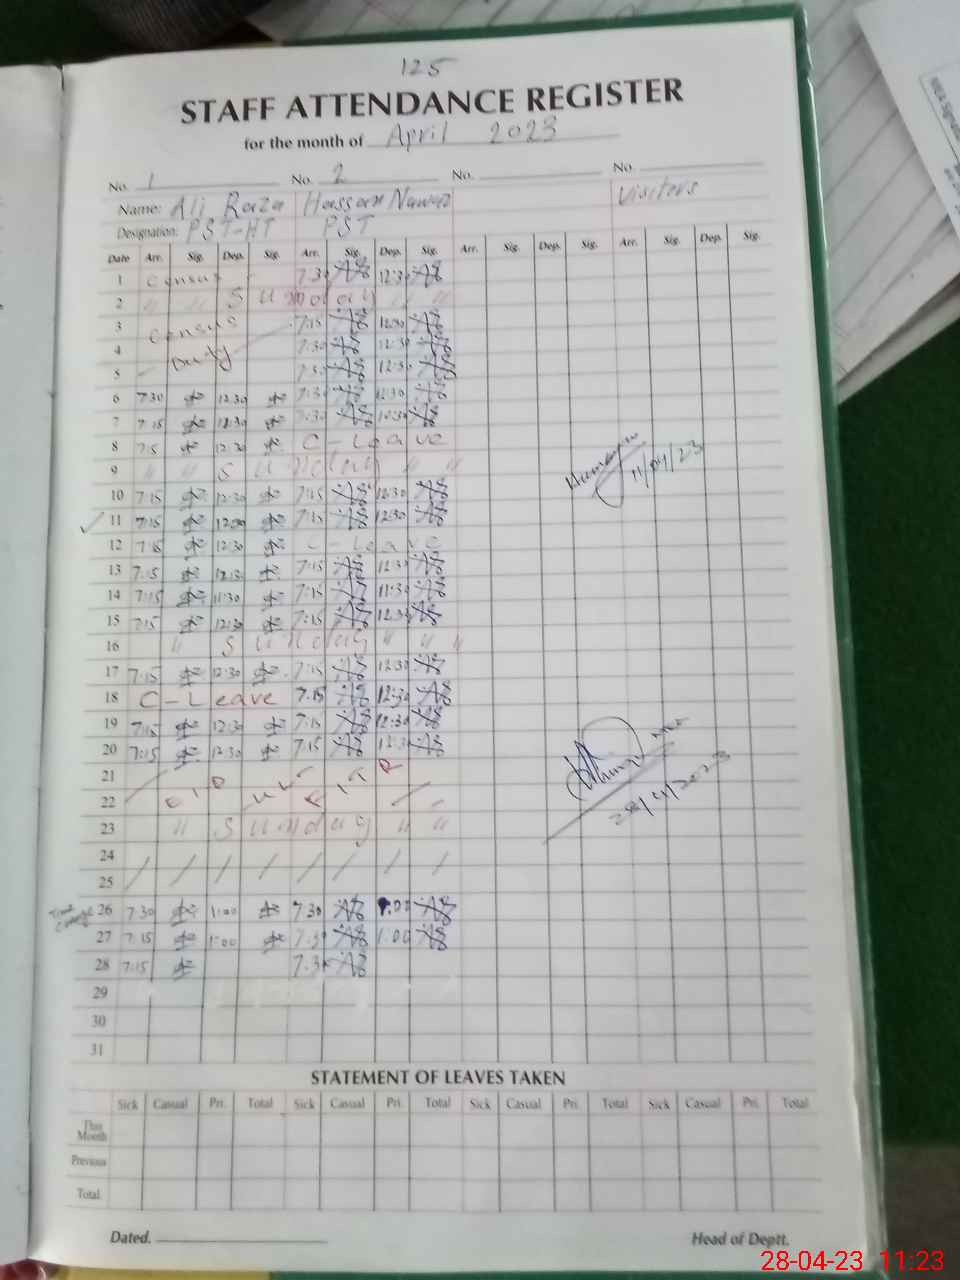 125
STAFF ATTENDANCE REGISTER
for the month of April 2023
No. 1 No. 2 No. No.
Name: Ali Raza Hassan Nawaz Visitors
Designation: PST-HT PST
Date Arr. Sig. Dep. Sig. Arr. Sig. Dep. Sig. Arr. Sig. Dep. Sig. Arr. Sig. Dep. Sig.
1 Census 7.30 12:30
2 " " Sunday " "
3 Census 7:15 12:30
4 Duty 7:30 12:30
5 7:30 12:30
6 7:30 12:30 7:30 12:30
7 7:15 7:30 10:30
8 7:15 12:30 C-Leave
9 " " Sunday " "
10 7:15 12:30 7:15 12:30
11 7:15 12:30 7:15 12:30 11/04/23
12 7:15 12:30 C-Leave
13 7:15 12:30 7:15 12:30
14 7:15 11:30 7:15 11:30
15 7:15 12:30 7:15 12:30
16 " Sunday " " "
17 7:15 12:30 7:15 12:30
18 C-Leave 7.15 12:30
19 7:15 12:30 7:15 12:30
20 7:15 12:30 7:15 12:30
21
22 EID UL FITR
23 " Sunday " "
28/4/2023
24
25
Time Change 26 7:30 1:00 7:30 1:00
27 7:15 1:00 7.30 1:00
28 7:15 7.30
29
30
31
STATEMENT OF LEAVES TAKEN
Sick Casual Pri. Total Sick Casual Pri. Total Sick Casual Pri. Total Sick Casual Pri. Total
This Month
Previous
Total
Dated. Head of Deptt.
28-04-23 11:23